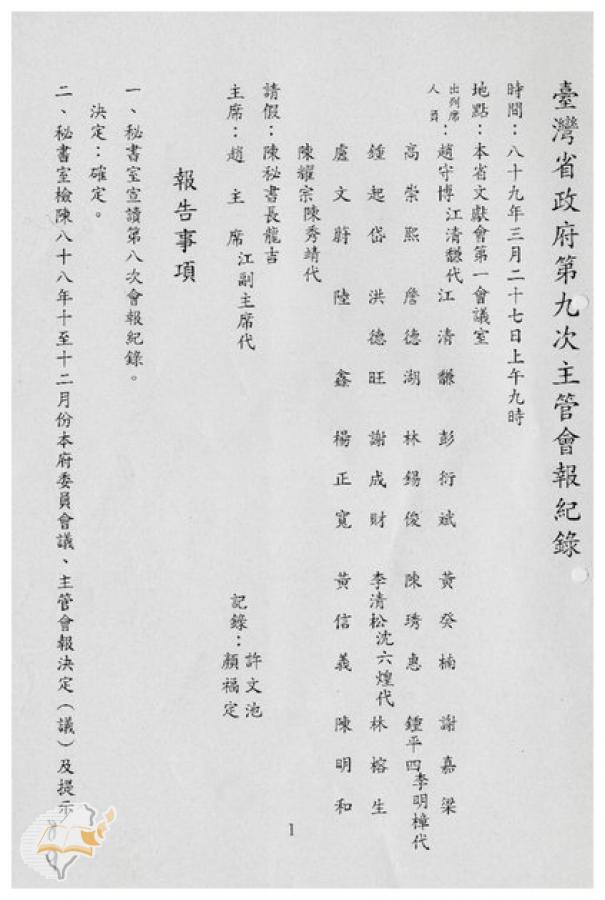 臺灣省政府第九次主管會報紀錄
時間：八十九年三月二十七日上午九時
地點：本省文獻會第一會議室
出列席人員：趙守博江清馦代 江清馦 彭衍斌 黃癸楠 謝嘉梁
高崇熙 詹德湖 林錫俊 陳琇惠 鍾平四李明樟代
鍾起岱 洪德旺 謝成財 李清松沈六煌代 林榕生
盧文蔚 陸鑫 楊正寬 黃信義 陳明和
陳耀宗陳秀靖代
請假：陳秘書長龍吉
主席：趙主席江副主席代 記錄：許文池 顏福定
報告事項
一、秘書室宣讀第八次會報紀錄。
決定：確定。
二、秘書室檢陳八十八年十至十二月份本府委員會議、主管會報決定（議）及提示
1